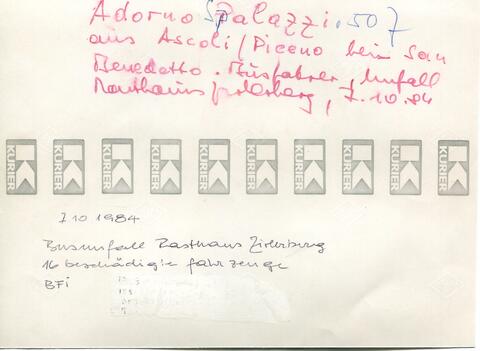 Adorno Palazzi. 50 7
aus Ascoli/Piceno beim San
Benedetto. Busfahrer, Unfall
Rasthaus Zirlerberg, 7.10.84
KURIER KURIER KURIER KURIER KURIER KURIER KURIER KURIER KURIER
7 10 1984
Busunfall Rasthaus Zirlerberg
16 beschädigte fahrzeuge
BFi